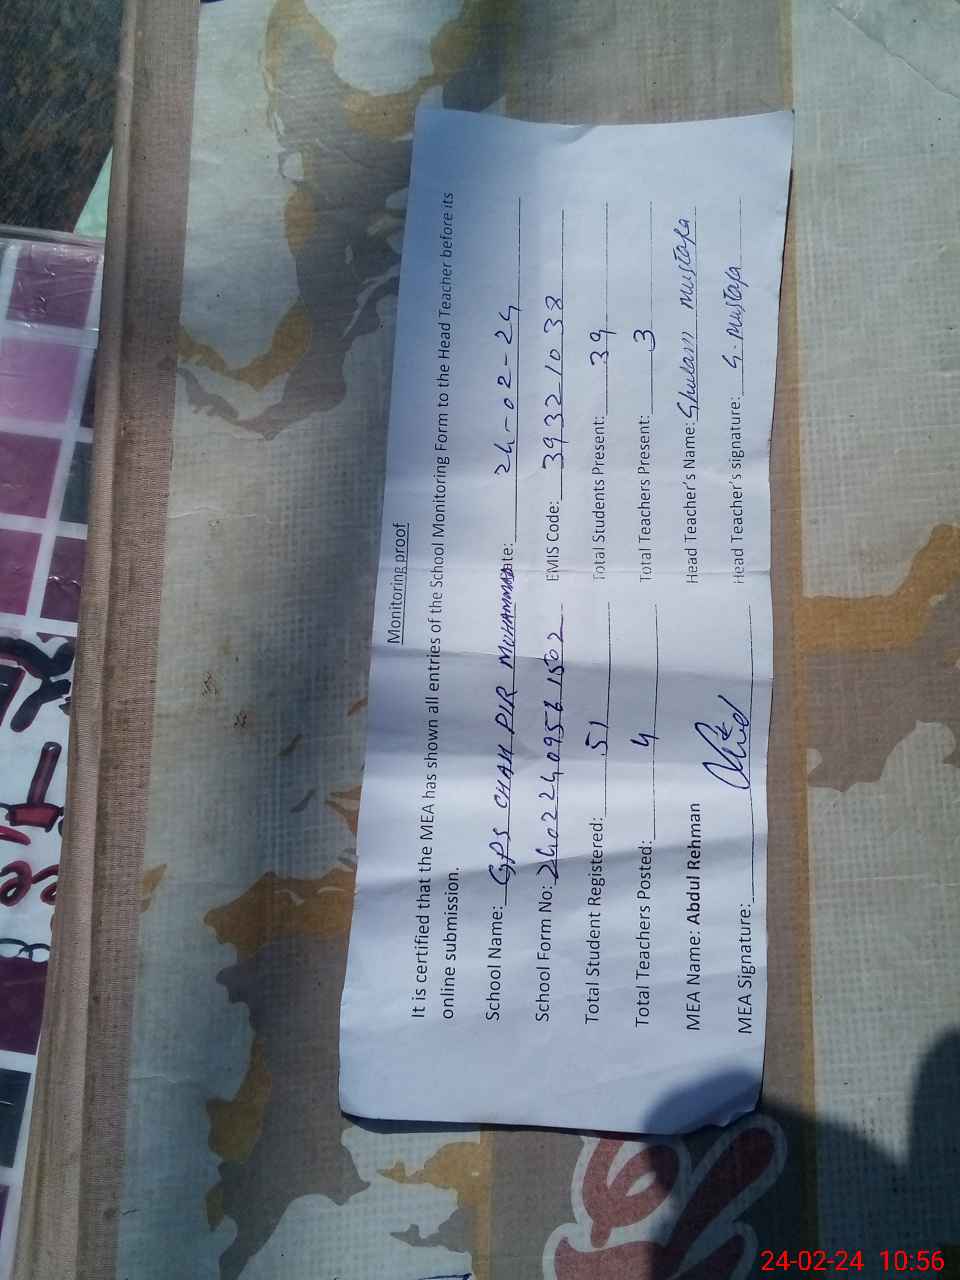 Monitoring proof
It is certified that the MEA has shown all entries of the School Monitoring Form to the Head Teacher before its
online submission.
School Name: GPS CHAH PIR MUHAMMAD ate: 24-02-24
School Form No: 24022409561502 EMIS Code: 39321033
Total Student Registered: 51 Total Students Present: 39
Total Teachers Posted: 4 Total Teachers Present: 3
MEA Name: Abdul Rehman Head Teacher's Name: Ghulam mustafa
MEA Signature: Head Teacher's signature: G. mustafa
24-02-24 10:56